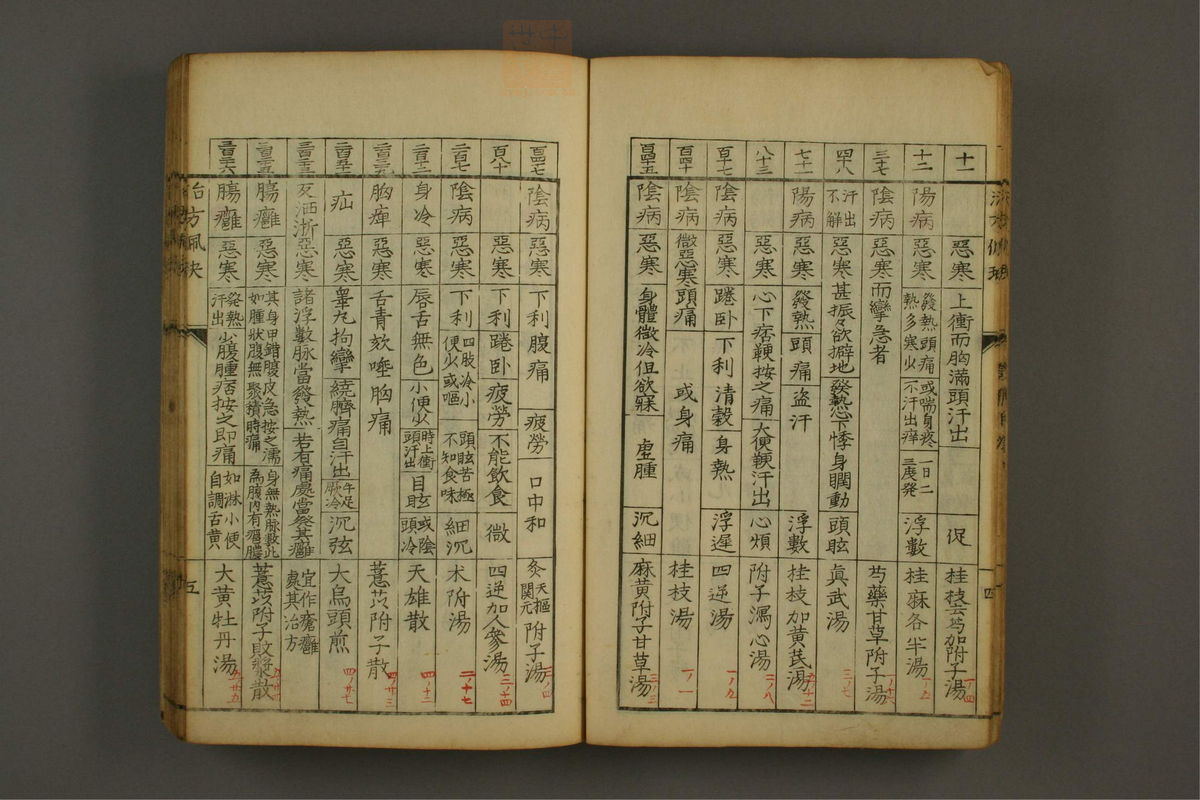 十一 惡寒 上衝而胸滿頭汗出 促 桂枝去芍加附子湯 一ノ四
十二 陽病 惡寒 發熱頭痛 熱多寒少 或喘身疼 不汗出痒 一日二三度発 浮數 桂麻各半湯
三十七 陰病 惡寒而攣急者 芍藥甘草附子湯
四十八 汗出不解 惡寒 甚振々欲擗地 發熱 心下悸身瞤動 頭眩 真武湯 三ノ七
七十一 陽病 惡寒 發熱 頭痛 盗汗 浮數 桂枝加黃芪湯
八十三 惡寒 心下痞鞕按之痛 大便鞕汗出 心煩 附子瀉心湯 二ノ八
百十七 陰病 惡寒 蜷卧 下利清穀 身熱 浮遲 四逆湯 一ノ九
百四十 陰病 微惡寒 頭痛 或身痛 桂枝湯 一ノ一
百四十五 陰病 惡寒 身體微冷但欲寐 虛腫 沉細 麻黃附子甘草湯 三ノ三
四
百四十七 陰病 惡寒 下利腹痛 疲勞 口中和 灸天樞関元 附子湯
百八十 惡寒 下利 蜷卧 疲勞 不能飲食 微 四逆加人參湯 三ノ十四
二百七 陰病 惡寒 下利 四肢冷小便少或嘔 頭眩苦極不知食味 細沉 朮附湯 二ノ十七
二百十二 身冷 惡寒 唇舌無色 小便少 時上衝頭汗出 目眩 或陰頭冷 天雄散 四ノ十二
胸痺 惡寒 舌青欬唾胸痛 薏苡附子散 四ノ廿三
疝 惡寒 睾丸拘攣 繞臍痛自汗出 手足厥冷 沉弦 大烏頭煎 四ノ廿七
死洒淅惡寒 諸浮數脉當發熱 若有痛處當発其癰 宜作瘡癰處其治方
腸癰 惡寒 其身甲錯腹皮急按之濡 如腫狀腹無聚積時痛 身無熱脉數此為腹内有癰膿 薏苡附子敗漿散
腸癰 惡寒 發熱汗出 少腹腫痞按之即痛 如淋小便自調舌黃 大黃牡丹湯
五